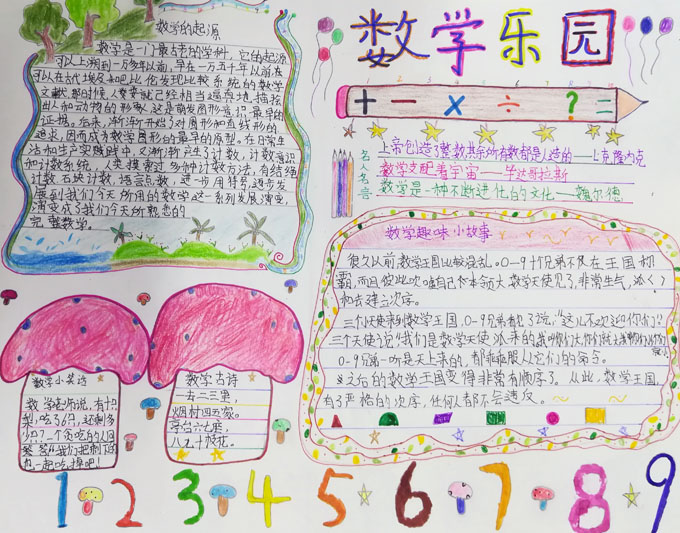 数学的起源
数学是一门最古老的学科，它的起源
可以上溯到一万多年以前，早在一万五千年以前，在
可以在古代埃及和巴比伦发现比较系统的数学
文献。那时候人类就已经相当逼真地描绘
出人和动物的形象，这是萌发图形意识最早的
证据。后来，渐渐开始了对圆形和直线形的
追求，因而成为数学图形的最早的原型。在日常生
活和生产实践中又渐渐产生了计数，计数意识
和计数系统，人类摸索过多种计数方法，有结绳
计数，石块计数，语言点数，进一步用符号，逐步发
展到我们今天所用的数学这一系列发展、演变，
演变成了我们今天所熟悉的
完整数学。
数学乐园
+ − × ÷ ? =
名人名言
上帝创造了整数，其余所有数都是人造的——上克隆内克
数学支配着宇宙——毕达哥拉斯
数学是一种不断进化的文化——魏尔德
数学趣味小故事
很久以前，数学王国比较混乱。0—9十个兄弟不仅在王国称
霸，而且彼此吹嘘自己的本领大，数学天使见了，非常生气，派<()
和去建立次序。
三个小天使来到数学王国，0-9兄弟都见了说："这儿不欢迎你们？"
三个天使说"我们是数学天使派来的
0-9兄弟一听是天上来的，都乖乖服从它们的命令。
从此，数学王国
有了严格的次序，任何人都不会违反。
数学小笑话
数学老师说，有十只
梨，吃了6只，还剩多
少只？一个贪吃的人回
答"我们把剩下的
也一起吃掉吧！
数学古诗
一去二三里，
烟村四五家。
亭台六七座，
八九十枝花。
1 2 3 4 5 6 7 8 9